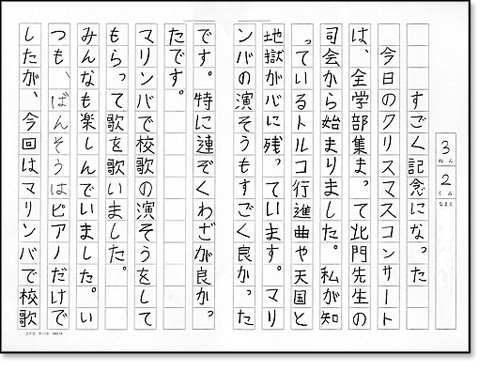 3ねん2くみなまえ
すごく記念になった
今日のクリスマスコンサート
は、全学部集まって北門先生の
司会から始まりました。私が知
っているトルコ行進曲や天国と
地獄が心に残っています。マリ
ンバの演そうもすごく良かった
です。特に連ぞくわざが良かっ
たです。
マリンバで校歌の演そうをして
もらって歌を歌いました。
みんなも楽しんでいました。い
つも、ばんそうはピアノだけで
したが、今回はマリンバで校歌